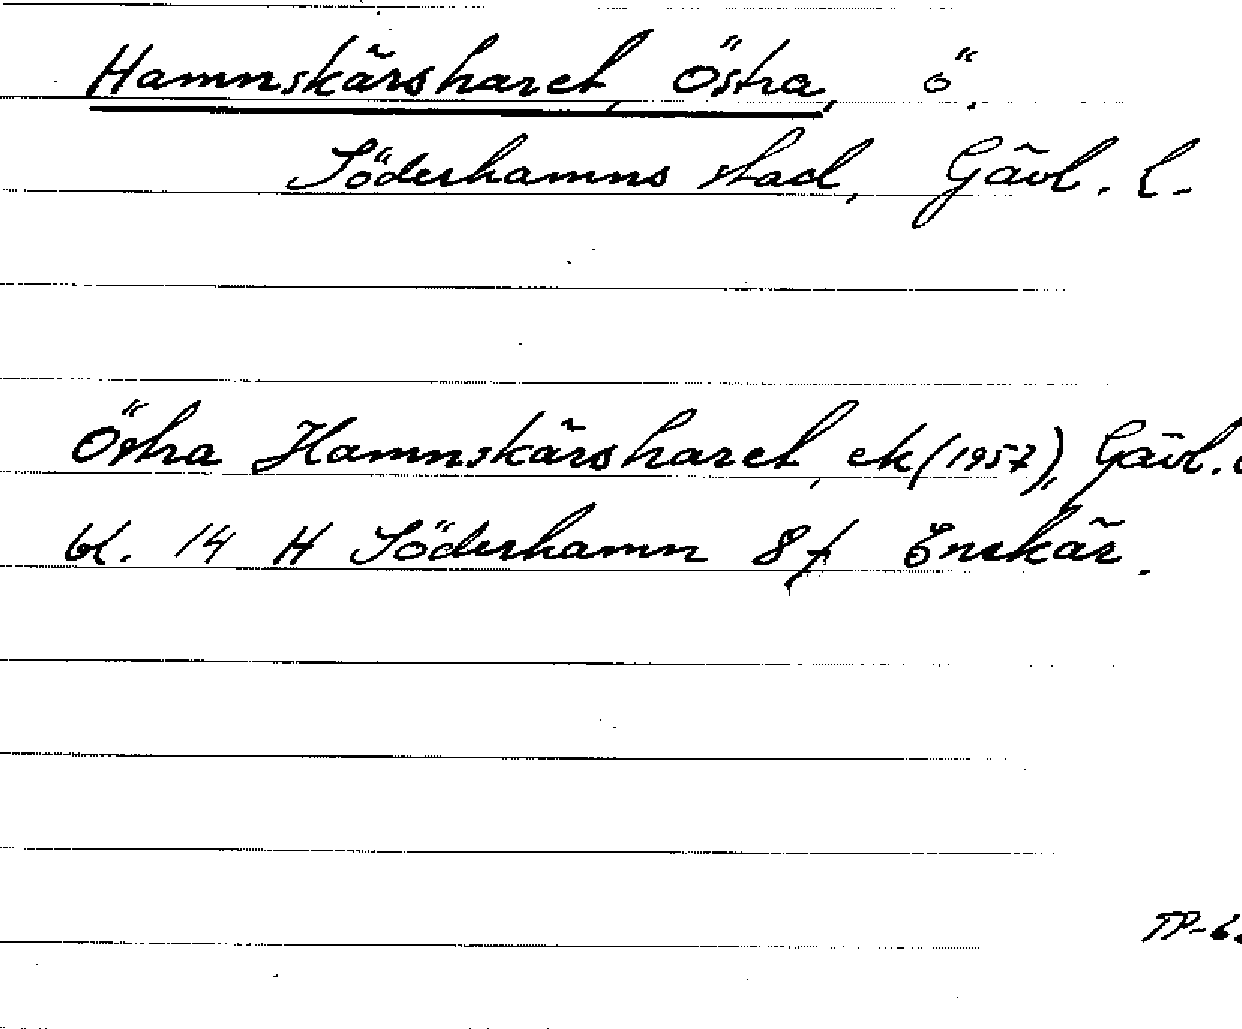 Hamnskärsharet, Östra, ö.
Söderhamns stad, Gävl. l.
Östra Hamnskärsharet, ek (1957), Gävl.
bl. 14 H Söderhamn 8f Enskär.
TP-6